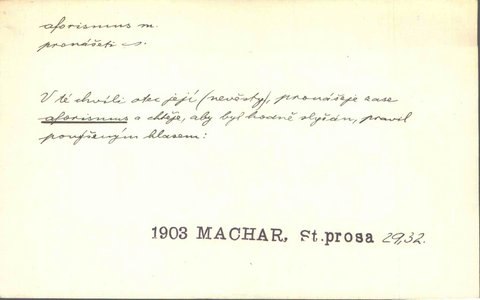 aforismus m.
pronášeti s.
V té chvíli otec její (nevěsty), pronášeje zase
aforismus a chtěje, aby byl hodně slyšán, pravil
povýšeným hlasem:
1903 MACHAR, St.prosa 29,32.